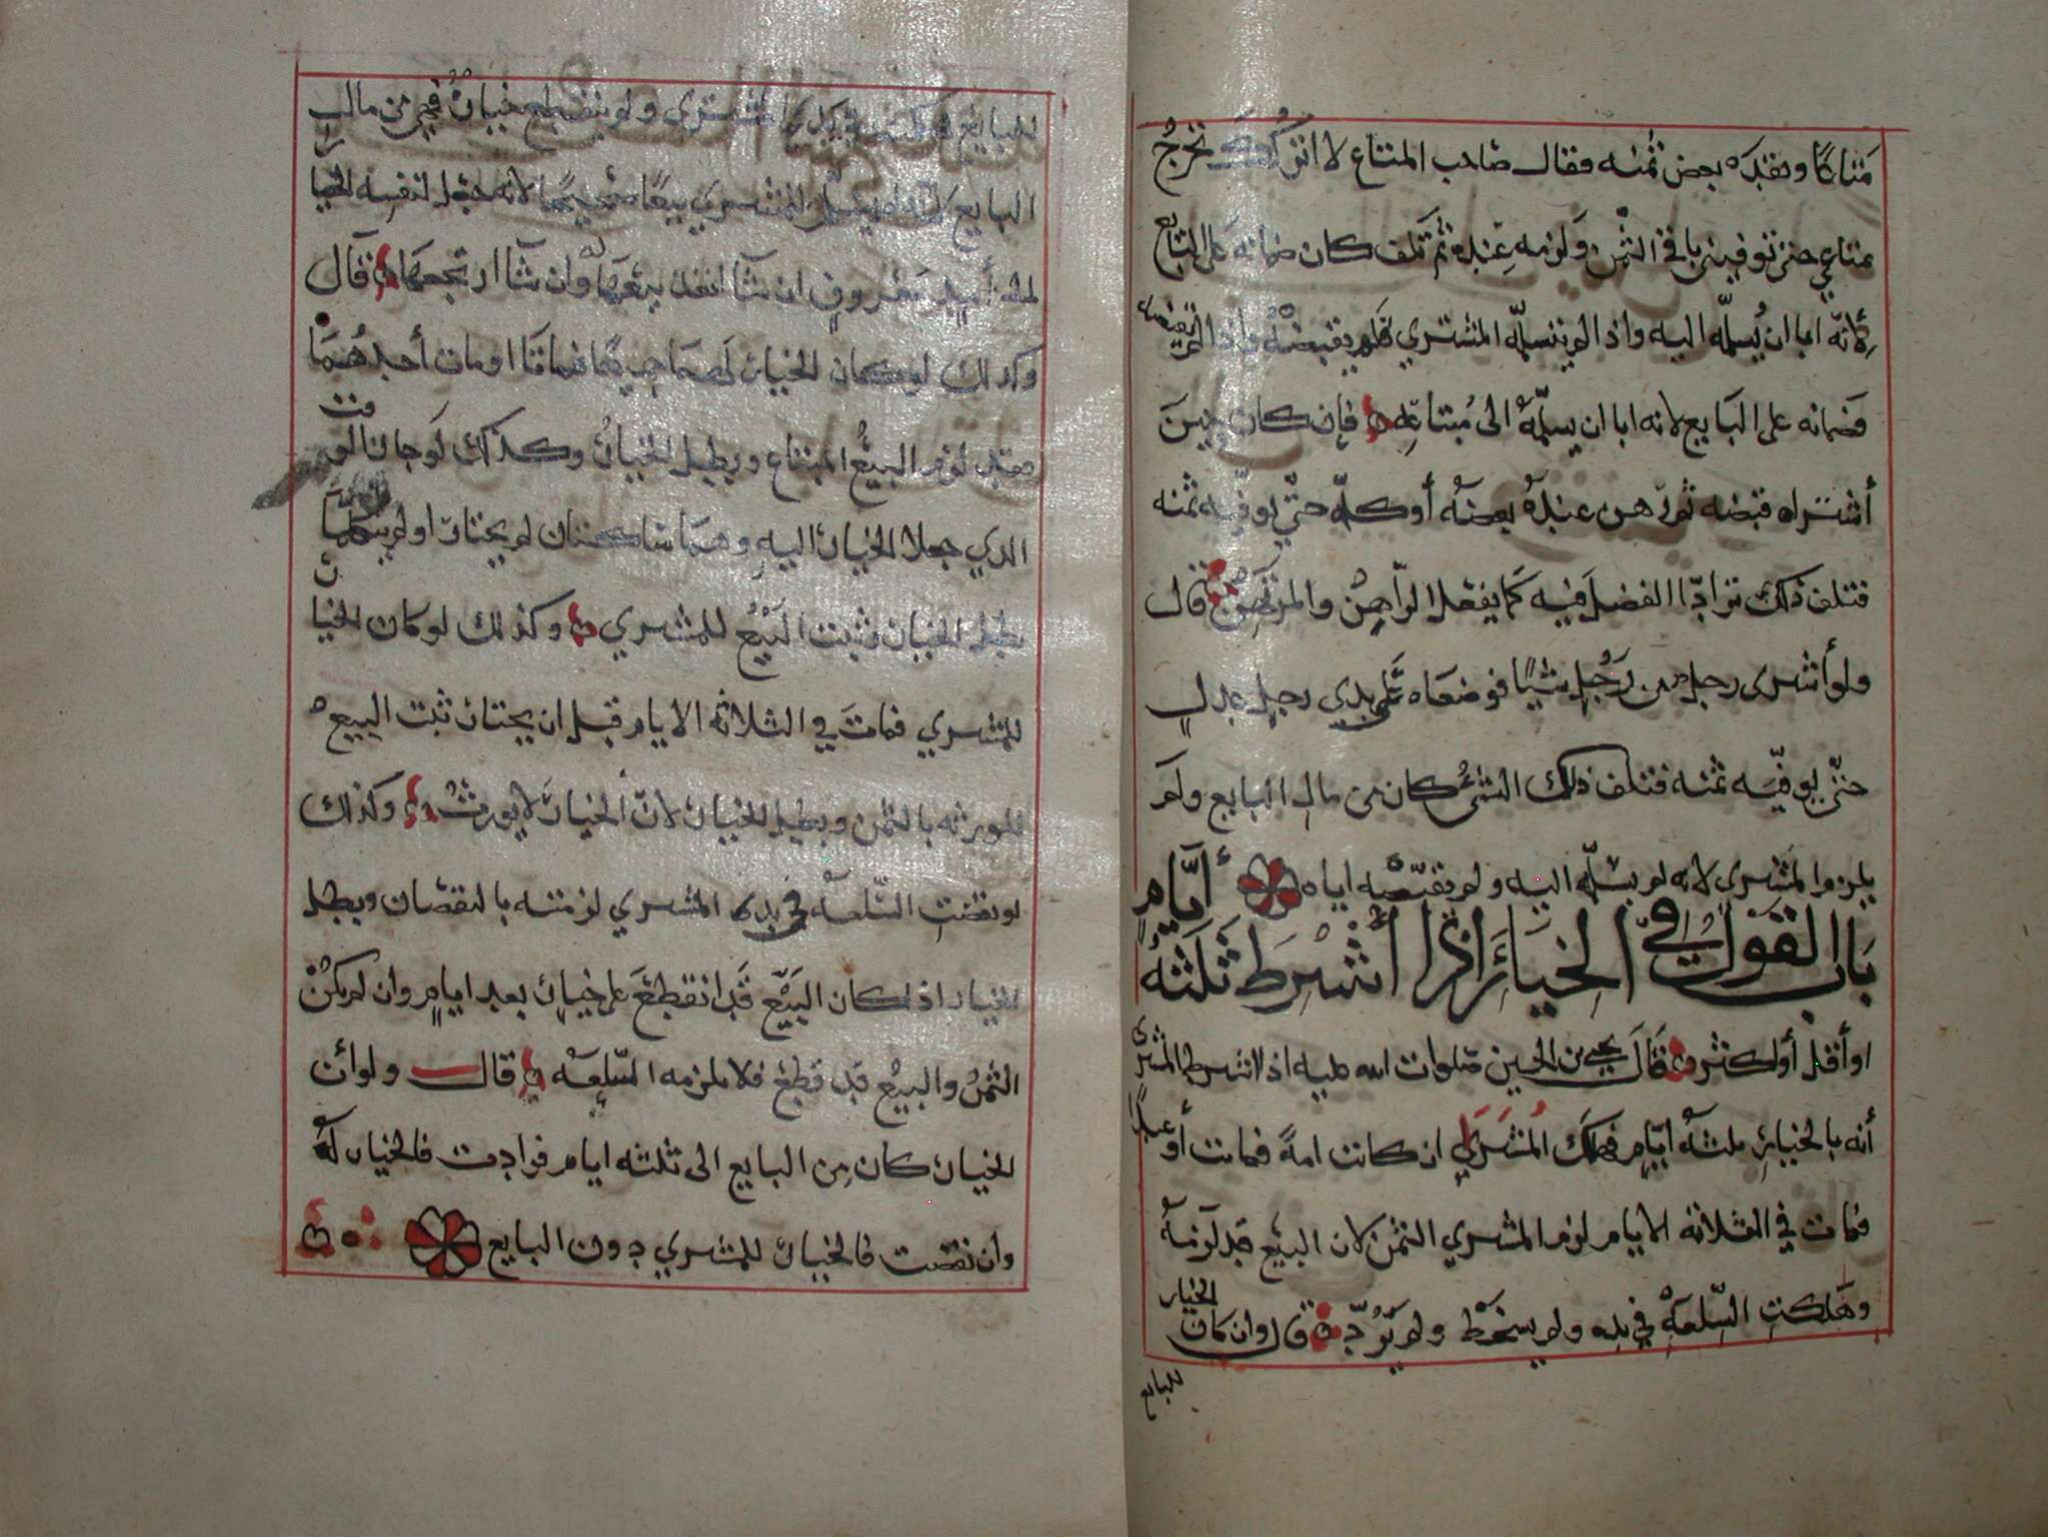 متاعًا ونقده بعض ثمنه فقال صاحب المتاع لا اتركك تخرج
متاعي حتى توفيني باقي الثمن ولزمه عنده ثم تلف كان ضمانه على البايع
لانه ابا ان يسلمه اليه واذا لم يتسلمه المشتري فلم يقبضه واذا لم يقبضه
فضمانه على البايع لانه ابا ان يسلمه الى مبتاعه فان كان حين
أشتراه قبضه ثم رهن عنده بعضه أو كله حتى يوفيه ثمنه
فتلف ذلك ترادّا الفضل فيه كما يفعل الراهن والمرتهن قال
ولو أشترى رجل من رجل شيًا فوضعاه على يدي رجل عدل
حتى يوفيه ثمنه فتلف ذلك الشئ كان من مال البايع ولم
يلزم المشتري لانه لم يسلمه اليه ولم يقبضه اياه
باب القول في الخيار اذا أشرط ثلثة أيام
او أقل أو أكثر قال يحيى بن الحسين صلوات الله عليه اذا اشرط المشتري
أنه بالخيار ثلثة ايام فهلك المشترى ان كانت امة فماتت أو عبدًا
فمات في الثلاثة الايام لزم المشتري الثمن لان البيع قد لزمه
وهلكت السلعة في يده ولم يسخط ولم يردّ قال وان كان الخيار
للبايع
للبايع في يد المشتري ولم ينقطع خيار فهي من مال
البايع لانه لم يسلم للمشتري بيعًا صحيحًا لانه جعل لنفسه الخيار
لمدة أيام معروف ان شآ انفذ بيعها وان شآ ارتجعها قال
وكذلك لو كان الخيار لصاحبيهما فماتا او مات أحدهما
فقد لزم البيع المبتاع وبطل الخيار وكذلك لو جاز الوقت
الذي جعلا الخيار اليه وهما ساكتان لم يختارا او لم يتكلما
بطل الخيار وثبت البيع للمشتري وكذلك لو كان الخيار
للمشتري فمات في الثلاثة الايام قبل ان يختار ثبت البيع
للورثه بالثمن وبطل الخيار لان الخيار لا يورث وكذلك
لو نقصت السلعة في يدي المشتري لزمته بالنقصان وبطل
الخيار اذا كان البيع قد انقطع على خيار بعد ايام وان لم يكن
الثمن والبيع قد قطع فلا يلزمه السلعة قال ولو أن
الخيار كان من البايع الى ثلثة ايام فزادت فالخيار له
وان نقصت فالخيار للمشتري دون البايع